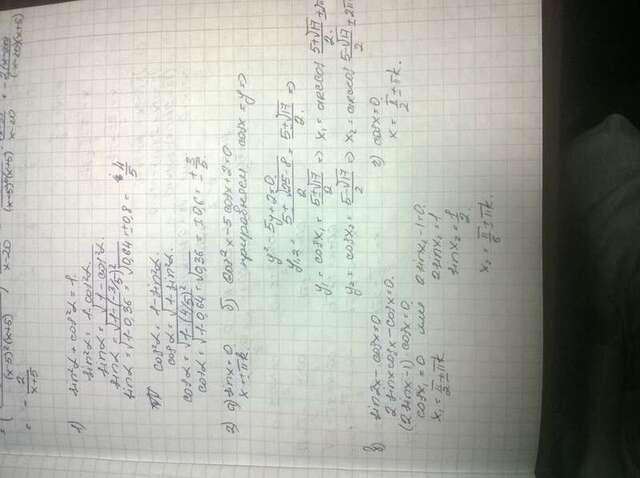 (x-5)²(x+5)
x-20
(x-5)²(x+5)
x-20
(x-20)(x+5)
= - 2/(x+5)
1) sin²α + cos²α = 1.
sin²α = 1-cos²α
sinα = √(1-cos²α)
sinα = √(1-(-3/5)²)
sinα = √(1-0,36) = √0,64 = ±0,8 = ±4/5
cos²α = 1-sin²α
cosα = √(1-sin²α)
cosα = √(1-(4/5)²)
cosα = √(1-0,64) = √0,36 = ±0,6 = ±3/5
2) а) sinx = 0
x = ±πk.
б) cos²x-5cosx+2=0.
приравняем cosx = y ⇒
y²-5y+2=0
y₁,₂ = (5±√(25-8))/2 = (5±√17)/2 ⇒
y₁ = cosx₁ = (5+√17)/2 ⇒ x₁ = arccos (5+√17)/2 ± 2π
y₂ = cosx₂ = (5-√17)/2 ⇒ x₂ = arccos (5-√17)/2 ± 2π
в) sin2x-cosx=0.
2sinxcosx-cosx=0.
(2sinx-1)cosx=0.
cosx₁=0 или 2sinx₂-1=0.
x₁ = π/2 ± πk 2sinx₂=1
sinx₂ = 1/2.
x₂ = π/6 ± πk.
г) cosx=0
x = π/2 ± πk.